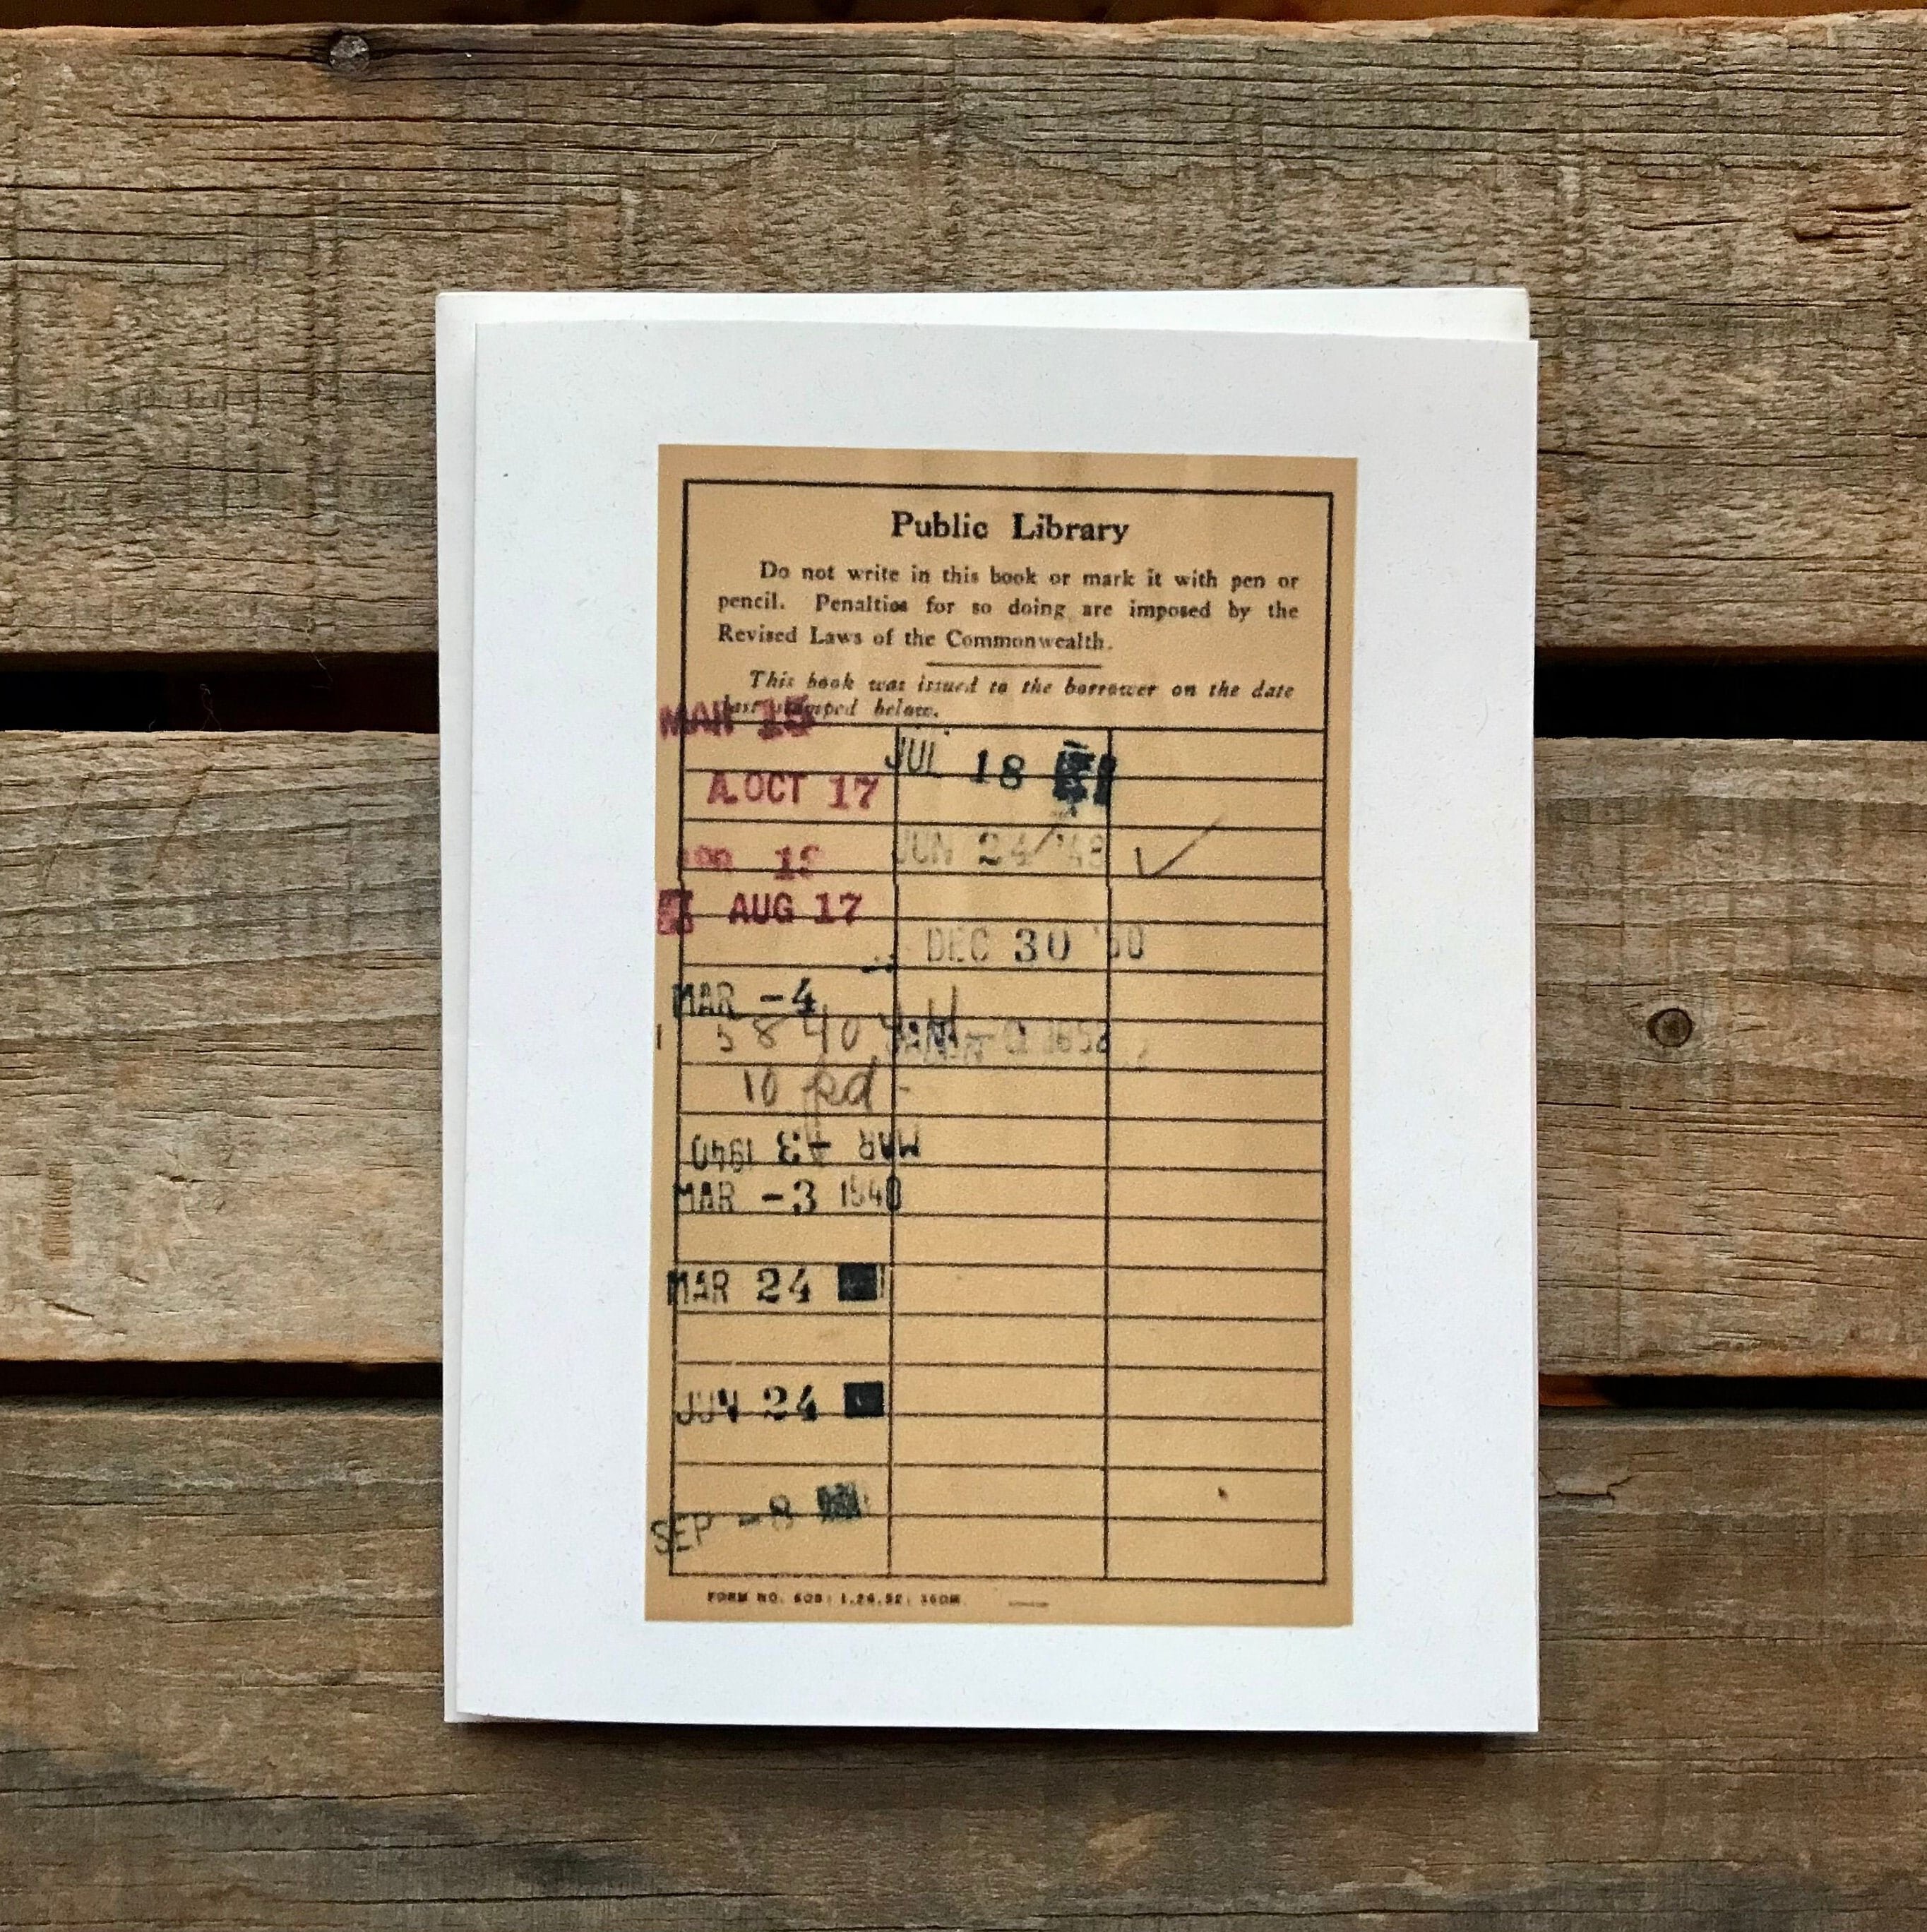 Public Library
Do not write in this book or mark it with pen or
pencil. Penalties for so doing are imposed by the
Revised Laws of the Commonwealth.
This book was issued to the borrower on the date
last stamped below.
MAR 15
A. OCT 17
AUG 17
MAR -4
5 8 40
10 pd -
MAR -3 1940
MAR -3 1940
MAR 24
JUN 24
SEP -8
JUL 18
JUN 24 '48
DEC 30 '50
FORM NO. 1.26.32;